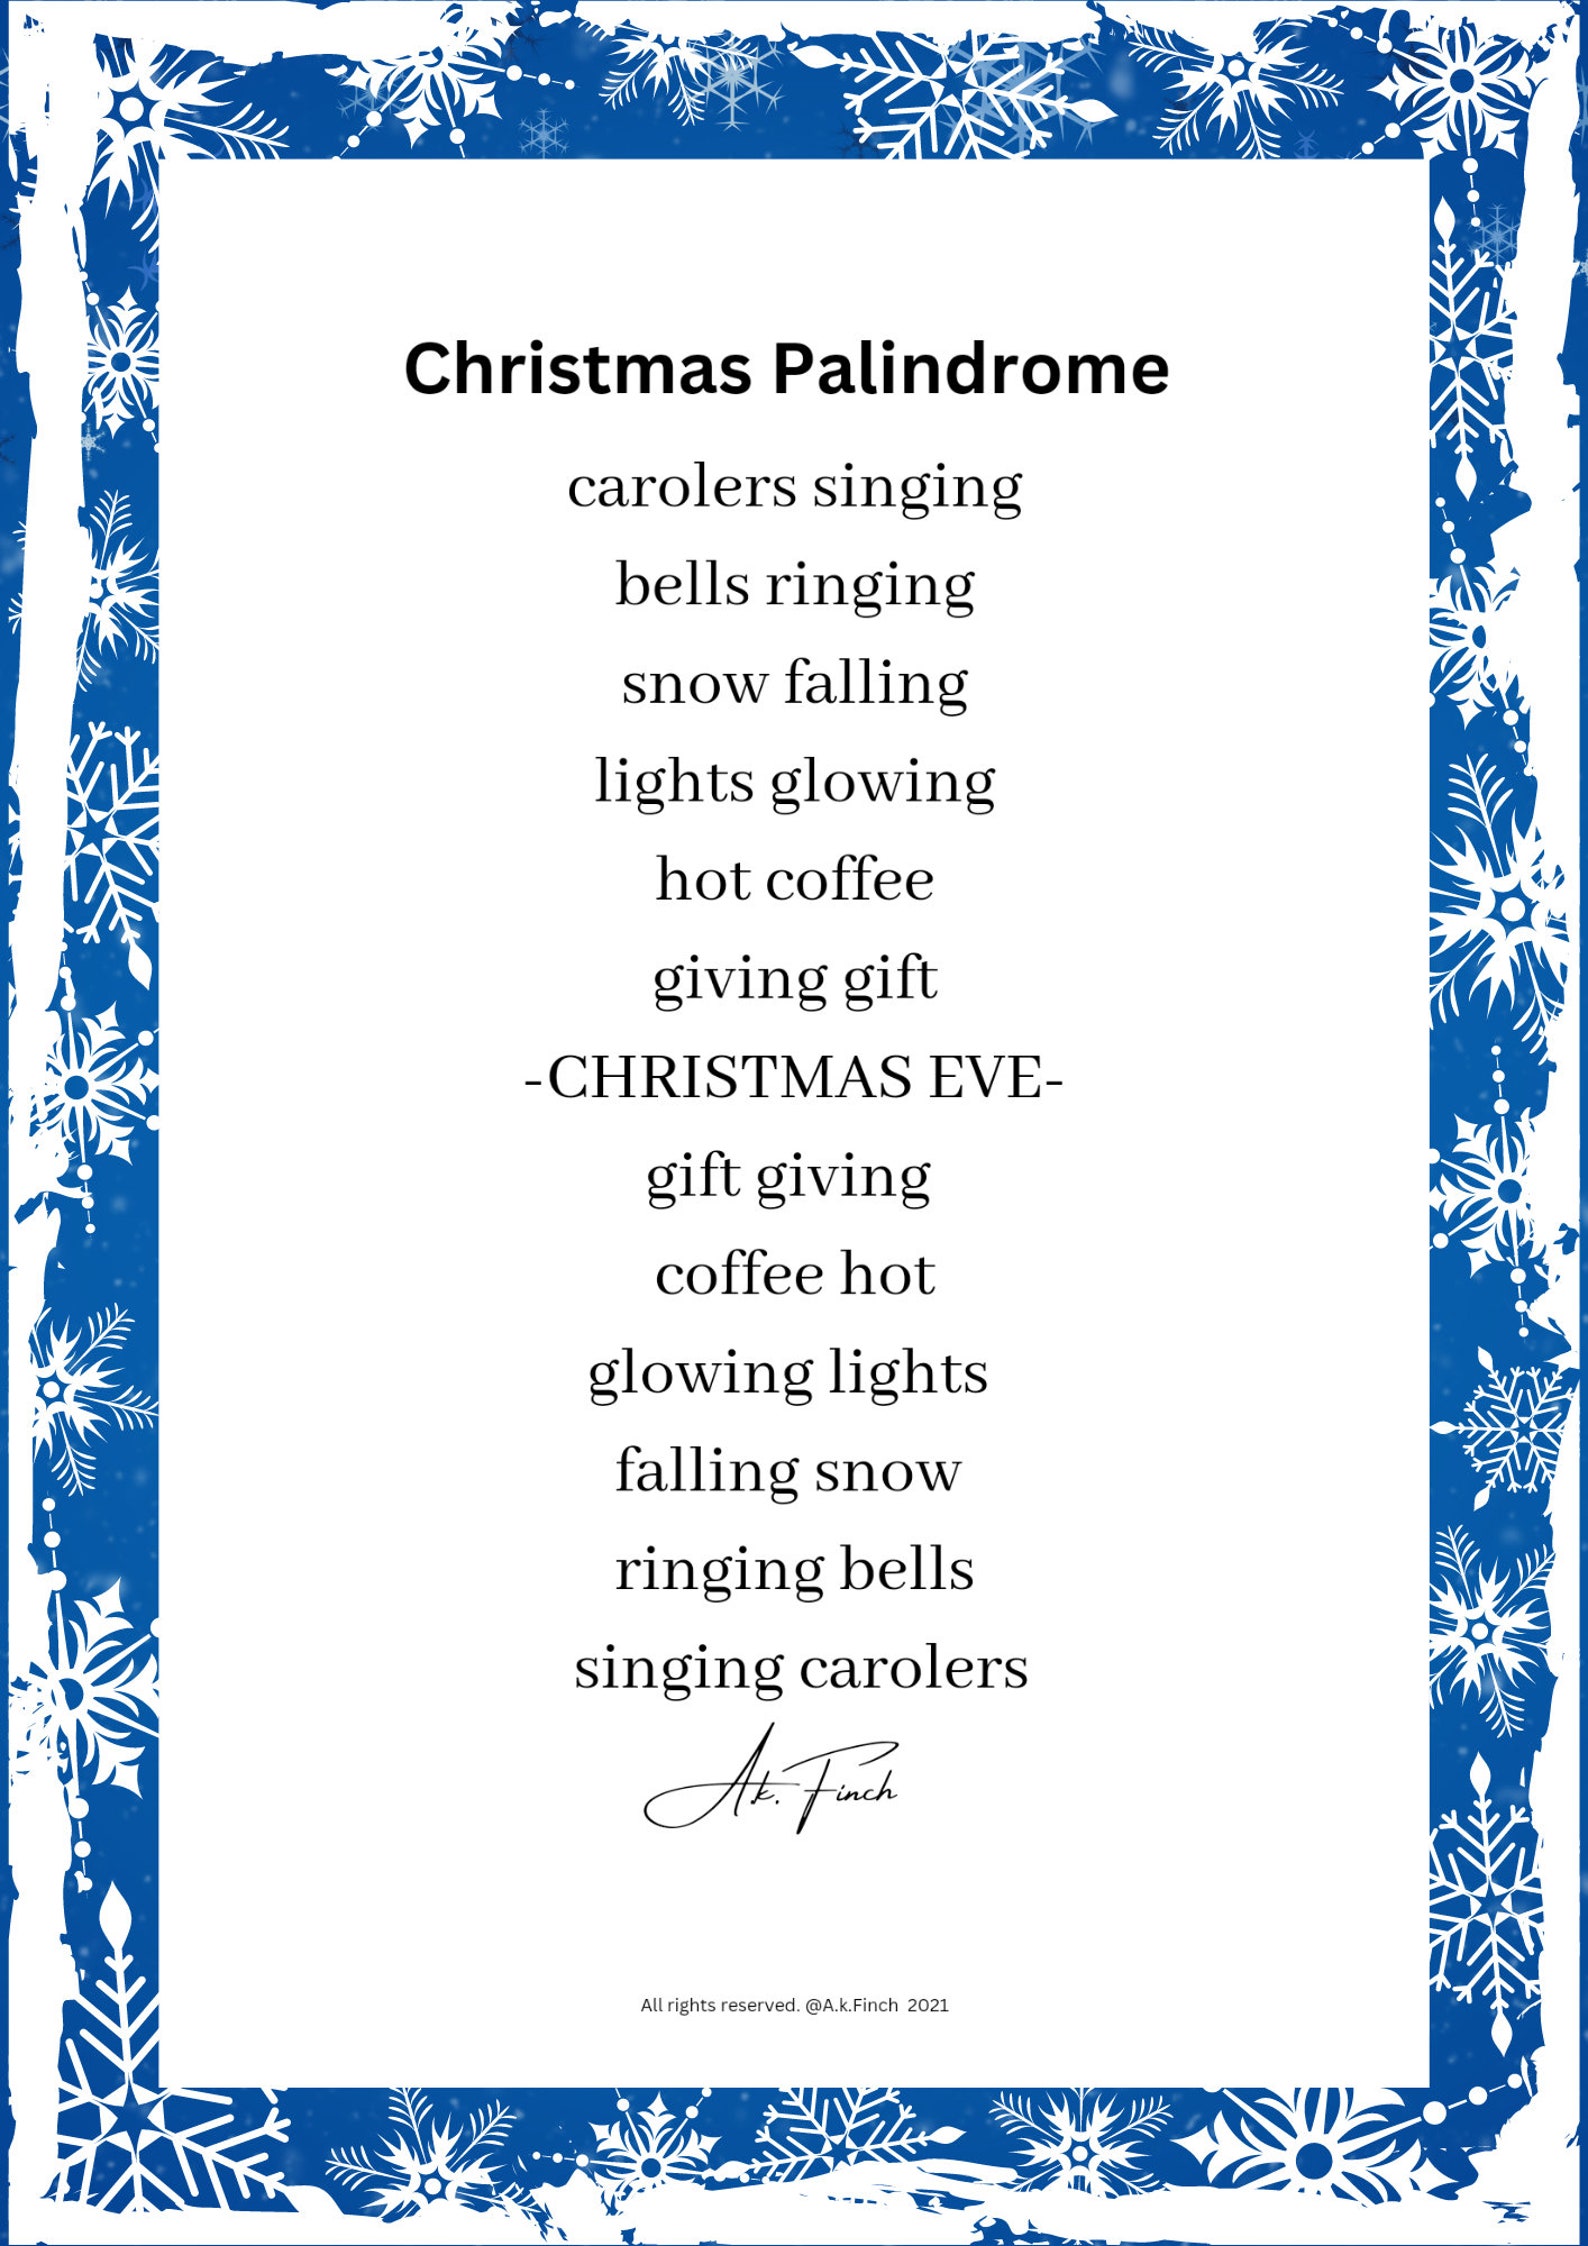 Christmas Palindrome
carolers singing
bells ringing
snow falling
lights glowing
hot coffee
giving gift
-CHRISTMAS EVE-
gift giving
coffee hot
glowing lights
falling snow
ringing bells
singing carolers
A.k. Finch
All rights reserved. @A.k.Finch 2021